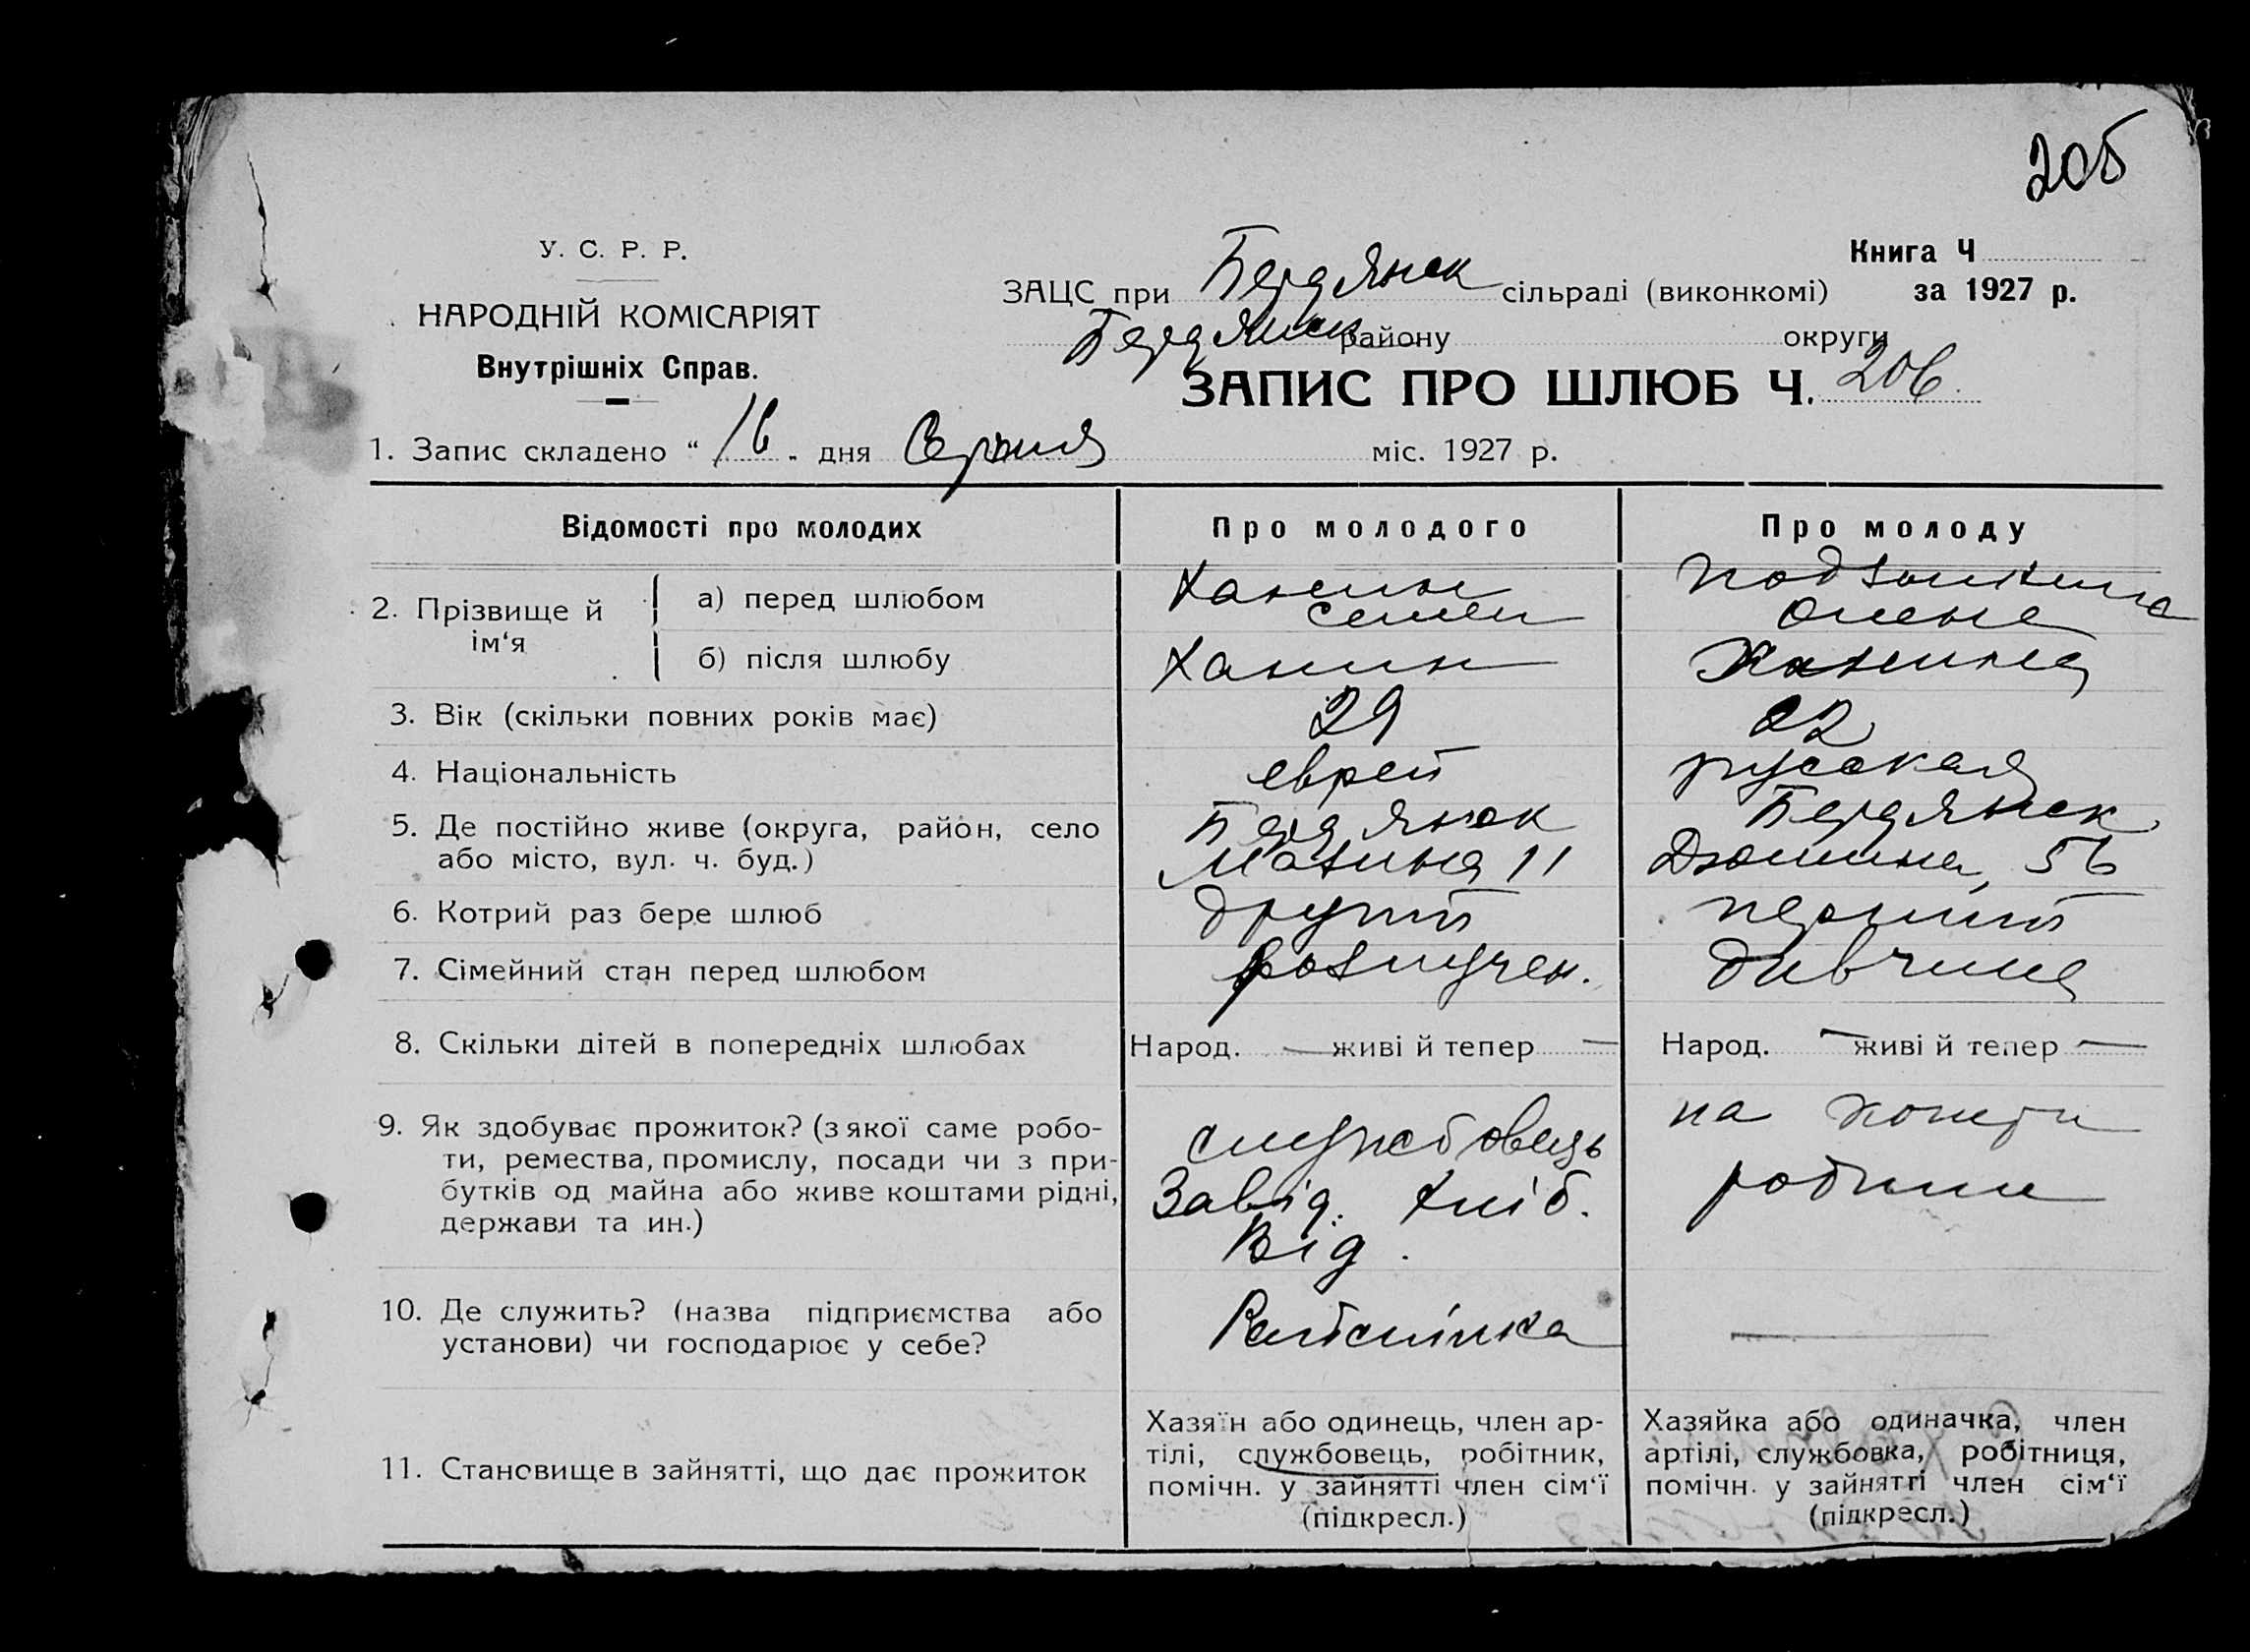 205
У. С. Р. Р.
НАРОДНІЙ КОМІСАРІЯТ
Внутрішніх Справ.
Книга Ч
за 1927 р.
ЗАЦС при Бердянск сільраді (виконкомі)
Бердянск району округи
ЗАПИС ПРО ШЛЮБ Ч. 206.
1. Запис складено “ 16 „ дня Серпня міс. 1927 р.
Відомості про молодих Про молодого Про молоду
2. Прізвище й ім‘я
а) перед шлюбом Ханин
Семен
Олена
б) після шлюбу Ханин Ханина
3. Вік (скільки повних років має) 29 22
4. Національність еврей русская
5. Де постійно живе (округа, район, село Бердянск Бердянск
або місто, вул. ч. буд.) Мазина 11 Дюмина, 56
6. Котрий раз бере шлюб другий перший
7. Сімейний стан перед шлюбом розлучен. дивчина
8. Скільки дітей в попередніх шлюбах Народ. — живі й тепер — Народ. — живі й тепер —
9. Як здобуває прожиток? (з якої саме робо-
ти, ремества, промислу, посади чи з при-
бутків од майна або живе коштами рідні,
держави та ин.)
службовець
Завід. хліб.
Від.
на кошти
родини
10. Де служить? (назва підприємства або
установи) чи господарює у себе?
Райспілка —
11. Становище в зайнятті, що дає прожиток
Хазяїн або одинець, член ар-
тілі, службовець, робітник,
помічн. у зайнятті член сім‘ї
(підкресл.)
Хазяйка або одиначка, член
артілі, службовка, робітниця,
помічн. у зайнятті член сім‘ї
(підкресл.)